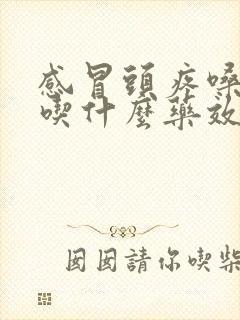 感冒頭疼嗓
喫什麼藥效
囡囡請你喫柴